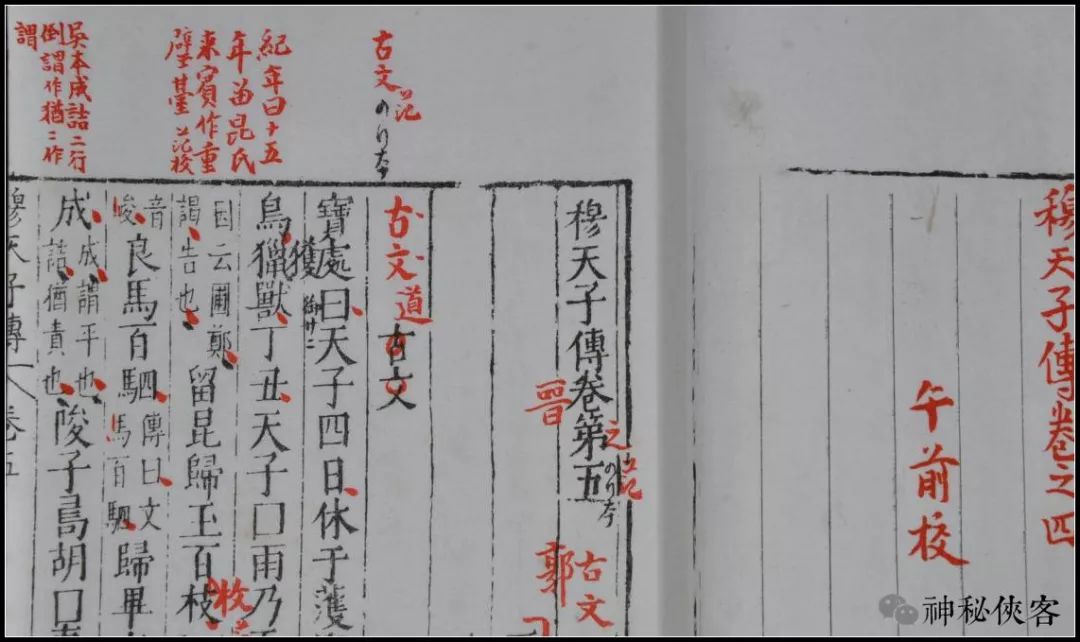 穆天子傳卷之四
午前校
穆天子傳卷第五
之
晉
古文
郭
古文
古文道
古文
寶處曰天子四日休于濩
獲
鳥獵獸丁丑天子囗雨乃
因云圃鄭
謁告也
留昆歸玉百枝
枚
音
峻
良馬百駟
傳曰文
馬百駟
歸畢
成
成謂平也
詰猶責也
陖子㽙胡囗
穆天子傳
卷五
紀年曰十五
年留昆氏
來賓作重
璧臺 范校
吳本成詰二行
倒謂作猶二作
謂
神秘俠客